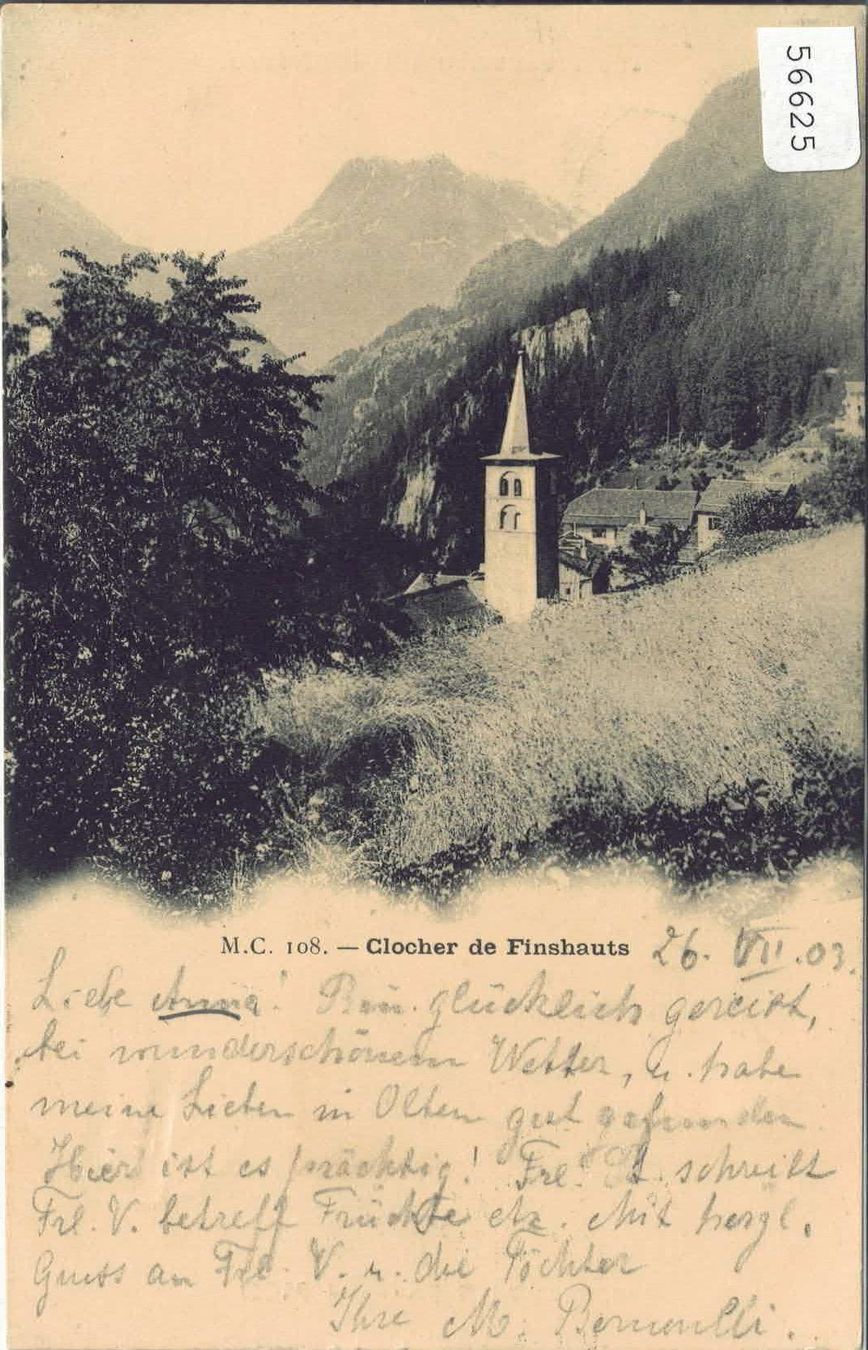 56625
M.C. 108. — Clocher de Finshauts
26. VII. 03.
Liebe Anna! Bin glücklich gereist,
bei wunderschönem Wetter, u. habe
meine Lieben in Olten gut gefunden
Hier ist es prächtig! Frl. schreibt
Frl. V. betreff Früchte etz. Mit herzl.
Gruss an Frl. V. u. die Töchter
Ihre M. Bernoulli.